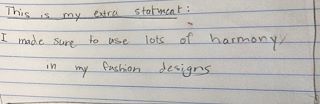 This is my extra statment:
I made sure to use lots of harmony
in my fashion designs